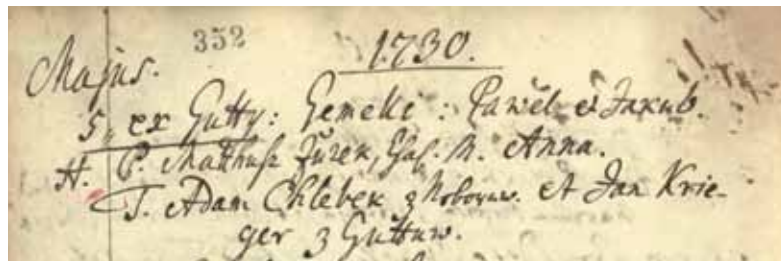 352 1730.
Majus.
5. ex Gutty: Gemelli: Pawel et Jakub.
H. P. Mathusz Żurek, M. Anna.
T. Adam Chlebek z et Jan Krie-
ger z Guttuw.